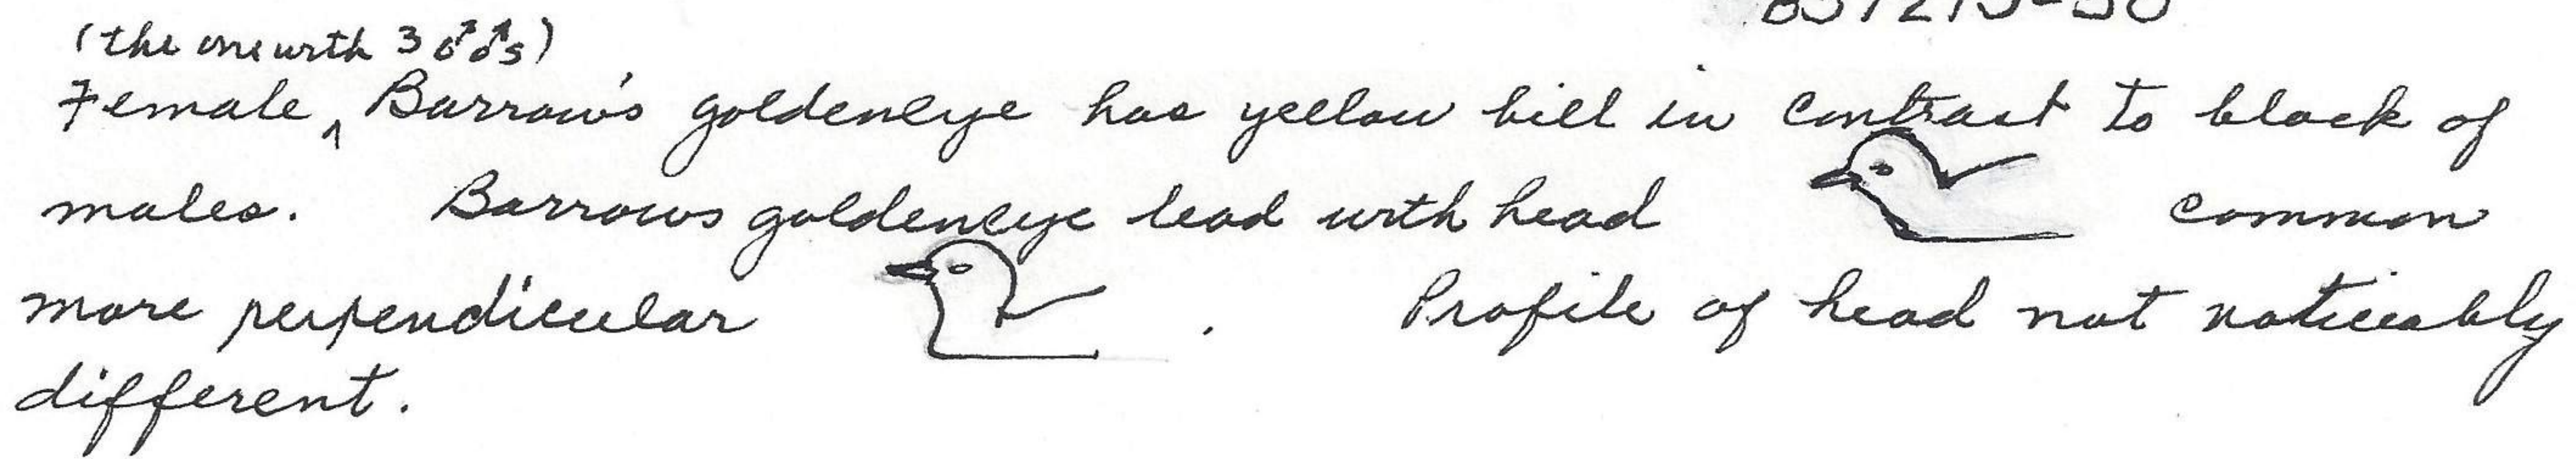 (the one with 3 ♂♂s)
Female ^ Barrow's goldeneye has yellow bill in contrast to black of
males. Barrows goldeneye lead with head common
more perpendicular . Profile of head not noticeably
different.